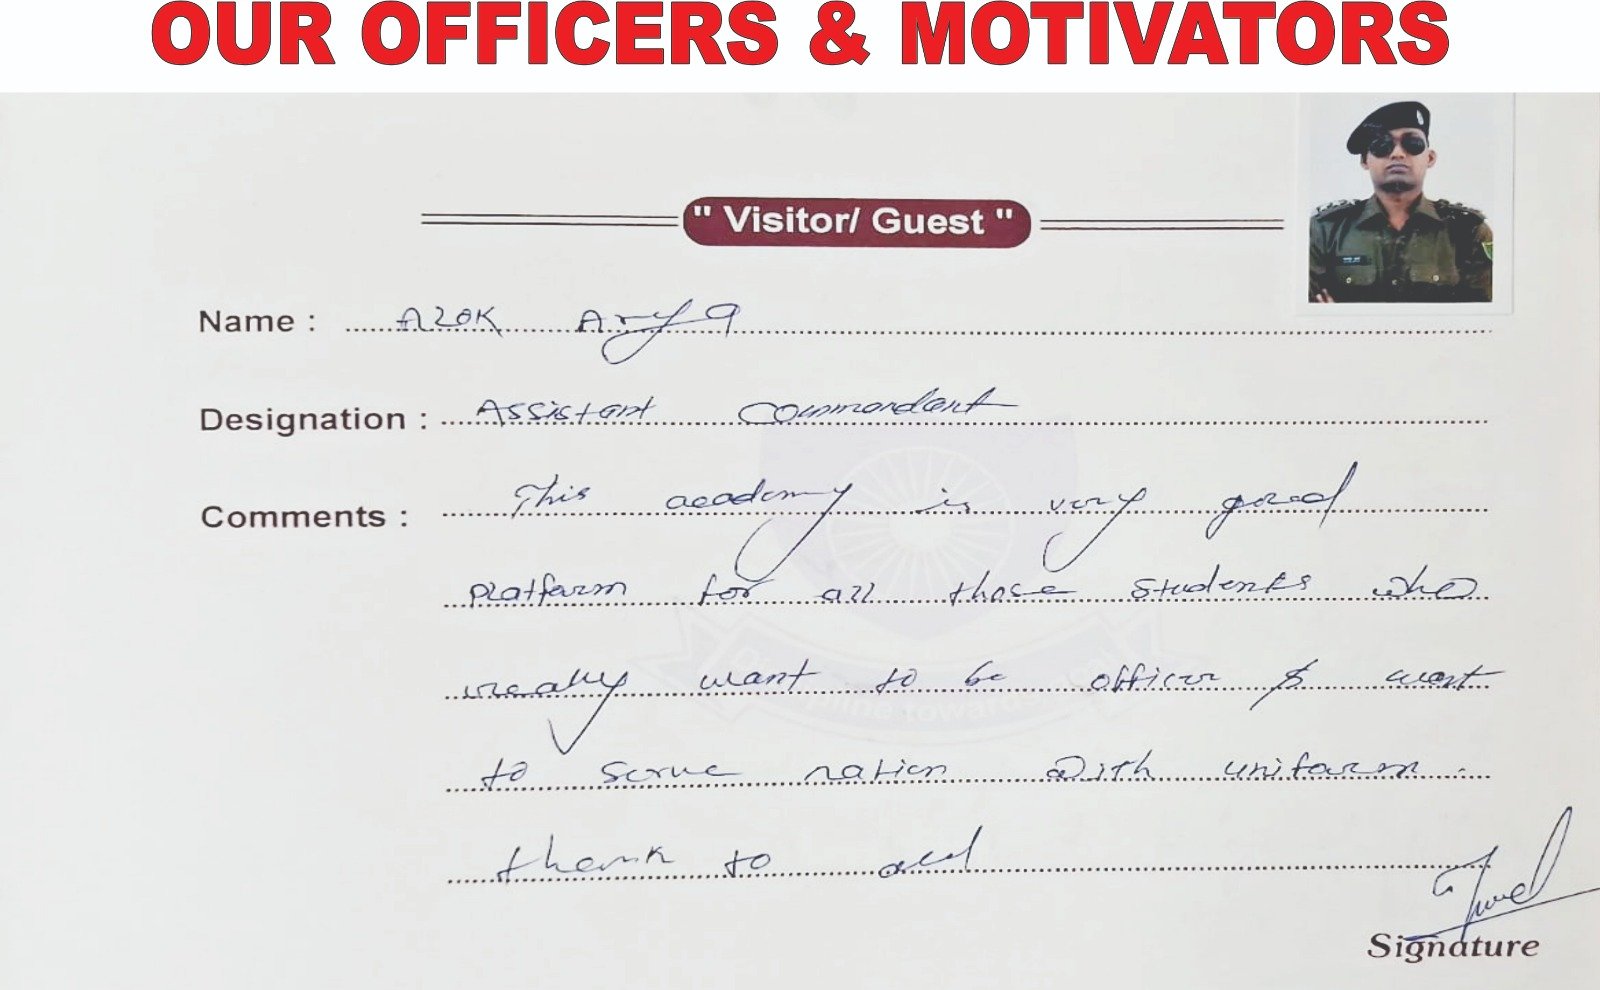 OUR OFFICERS & MOTIVATORS
" Visitor/ Guest "
Name : Alok Arya
Designation : Assistant Commandant
Comments : This academy is very good
platform for all those students who
really want to be officer & want
to serve nation with uniform.
thank to all
Signature